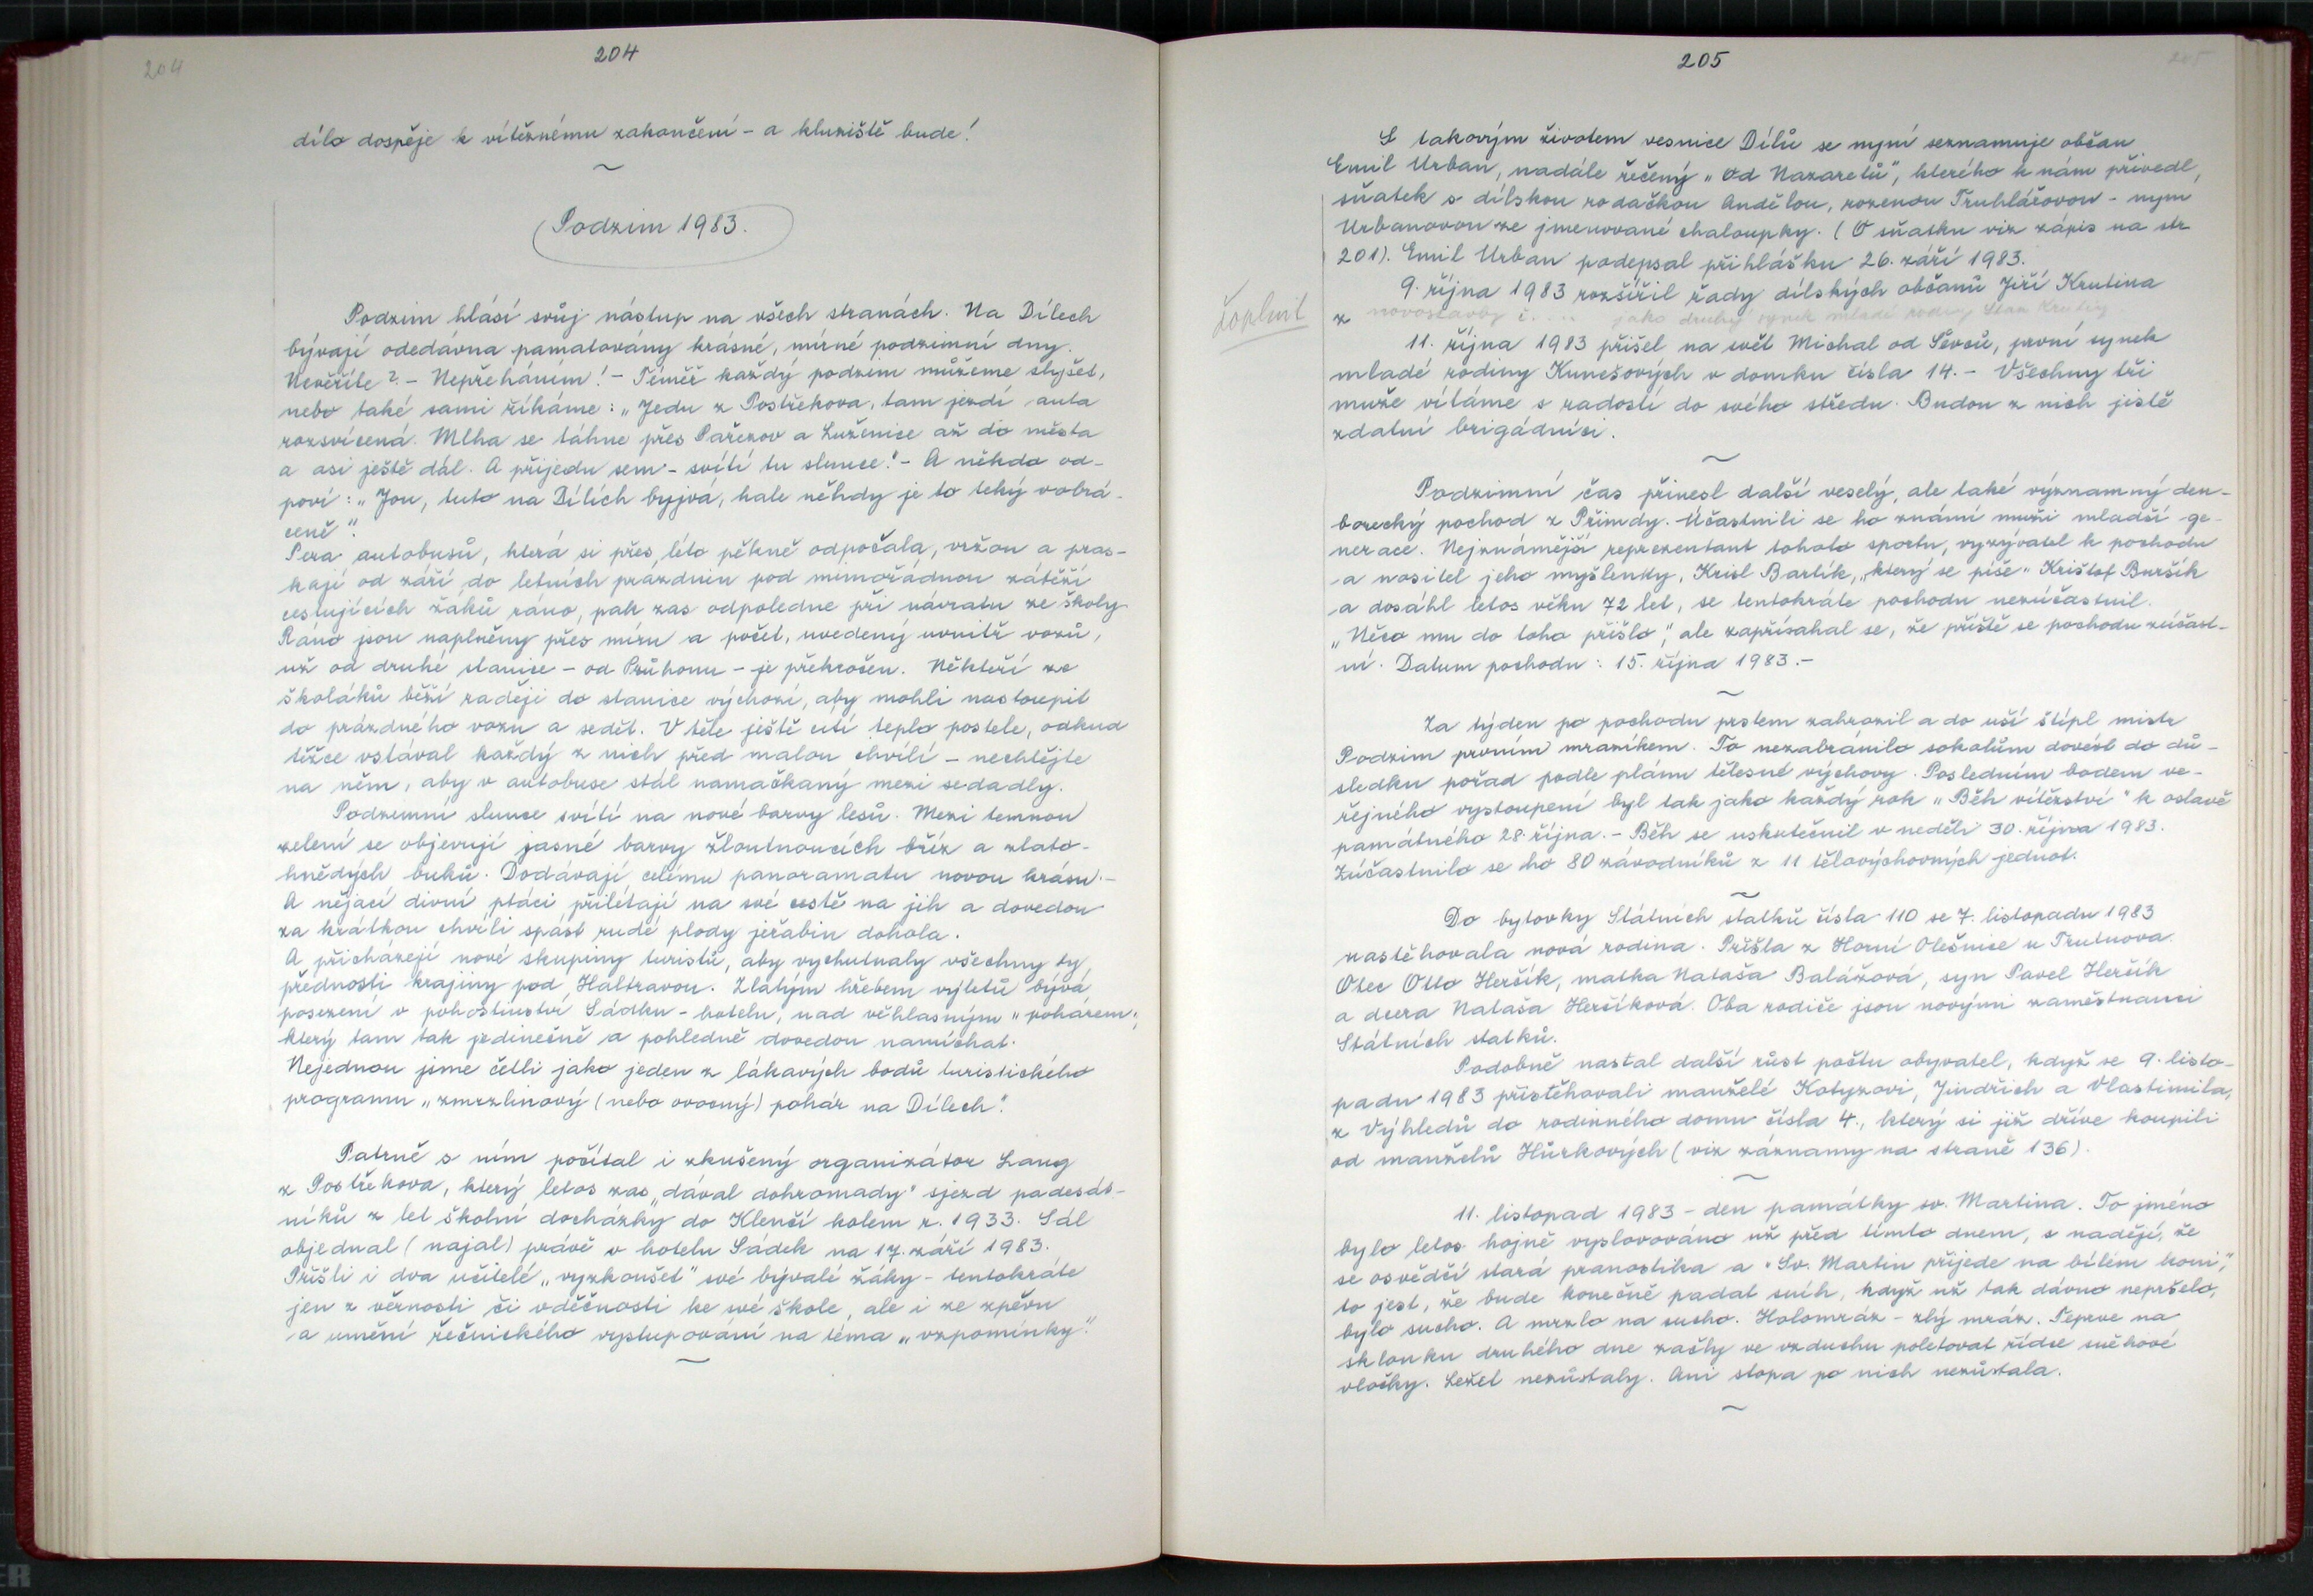 204
204
dílo dospěje k vítěznému zakončení - a kluziště bude!
~
Podzim 1983.
Podzim hlásí svůj nástup na všech stranách. Na Dílech
bývají odedávna pamatovány krásné, mírné podzimní dny.
Nevěříte? - Nepřeháním! - Téměř každý podzim můžeme slyšet,
nebo také sami říkáme: „Jedu z Postřekova, tam jezdí auta
rozsvícená. Mlha se táhne přes Pařezov a Luženice až do města
a asi ještě dál. A přijedu sem - svítí tu slunce!" - A někdo od-
poví: „Jou, tuto na Dílích byjvá, hale něhdy je to teký vobrá-
ceně".
Pera autobusů, která si přes léto pěkně odpočala, vržou a pras-
kají od září do letních prázdnin pod mimořádnou zátěží
cestujících žáků ráno, pak zas odpoledne při návratu ze školy.
Ráno jsou naplněny přes míru a počet, uvedený uvnitř vozů,
už od druhé stanice - od Průhonu - je překročen. Někteří ze
školáků běží raději do stanice výchozí, aby mohli nastoupit
do prázdného vozu a sedět. V těle ještě cítí teplo postele, odkud
těžce vstával každý z nich před malou chvílí - nechtějte
na něm, aby v autobuse stál namačkaný mezi sedadly.
Podzimní slunce svítí na nové barvy lesů. Mezi temnou
zelení se objevují jasné barvy žloutnoucích bříz a zlato-
hnědých buků. Dodávají celému panoramatu novou krásu. -
A nějací divní ptáci přilétají na své cestě na jih a dovedou
za krátkou chvíli spást rudé plody jeřabin dohola.
A přicházejí nové skupiny turistů, aby vychutnaly všechny ty
přednosti krajiny pod Haltravou. Zlatým hřebem výletů bývá
posezení v pohostinství Sádku - hotelu, nad věhlasným „pohárem",
který tam tak jedinečně a pohledně dovedou namíchat.
Nejednou jsme četli jako jeden z lákavých bodů turistického
programu „zmrzlinový (nebo ovocný) pohár na Dílech".
Patrně s ním počítal i zkušený organizátor Lang
z Postřekova, který letos zas „dával dohromady" sjezd padesát-
níků z let školní docházky do Klenčí kolem r. 1933. Sál
objednal (najal) právě v hotelu Sádek na 17. září 1983.
Přišli i dva učitelé „vyzkoušet" své bývalé žáky - tentokráte
jen z věrnosti či vděčnosti ke své škole, ale i ze zpěvu
a umění řečnického vystupování na téma „vzpomínky".
~
205
205
S takovým životem vesnice Dílů se nyní seznamuje občan
Emil Urban, nadále řečený „od Nazaretů", kterého k nám přivedl
sňatek s dílskou rodačkou Andělou, rozenou Truhlářovou - nyní
Urbanovou ze jmenované chaloupky. (O sňatku viz zápis na str.
201). Emil Urban podepsal přihlášku 26. září 1983.
9. října 1983 rozšířil řady dílských občanů Jiří Krutina
Doplnit
z novostavby č. .... jako druhý synek mladé rodiny Stan. Krutiny
11. října 1983 přišel na svět Michal od Ševců, první synek
mladé rodiny Kunešových v domku čísla 14. - Všechny tři
muže vítáme s radostí do svého středu. Budou z nich jistě
zdatní brigádníci.
~
Podzimní čas přinesl další veselý, ale také významný den-
borecký pochod z Přimdy. Účastnili se ho známí muži mladší ge-
nerace. Nejznámější reprezentant tohoto sportu, vyzývatel k pochodu
a nositel jeho myšlenky, Krisl Bartík, „který se píše" Krištof Buršík
a dosáhl letos věku 72 let, se tentokráte pochodu nezúčastnil.
„Něco mu do toho přišlo", ale zapřísahal se, že příště se pochodu zúčast-
ní. Datum pochodu: 15. října 1983. -
~
Za týden po pochodu prstem zahrozil a do uší štípl mistr
Podzim prvním mrazíkem. To nezabránilo sokolům dovést do dů-
sledku pořad podle plánu tělesné výchovy. Posledním bodem ve-
řejného vystoupení byl tak jako každý rok „Běh vítězství" k oslavě
památného 28. října. - Běh se uskutečnil v neděli 30. října 1983.
Zúčastnilo se ho 80 závodníků z 11 tělovýchovných jednot.
~
Do bytovky Státních statků čísla 110 se 7. listopadu 1983
nastěhovala nová rodina. Přišla z Horní Olešnice u Trutnova.
Otec Otto Herčík, matka Nataša Balážová, syn Pavel Herčík
a dcera Nataša Herčíková. Oba rodiče jsou novými zaměstnanci
Státních statků.
Podobně nastal další růst počtu obyvatel, když se 9. listo-
padu 1983 přistěhovali manželé Kotyzovi, Jindřich a Vlastimila,
z Výhledů do rodinného domu čísla 4., který si již dříve koupili
od manželů Hůrkových (viz záznamy na straně 136).
~
11. listopad 1983 - den památky sv. Martina. To jméno
bylo letos hojně vyslovováno už před tímto dnem, s nadějí, že
se osvědčí stará pranostika a „Sv. Martin přijede na bílém koni",
to jest, že bude konečně padat sníh, když už tak dávno nepršelo,
bylo sucho. A mrzlo na sucho. Holomráz - zlý mráz. Teprve na
sklonku druhého dne zašly ve vzduchu poletovat řídce sněhové
vločky. Ležet nezůstaly. Ani stopa po nich nezůstala.
~